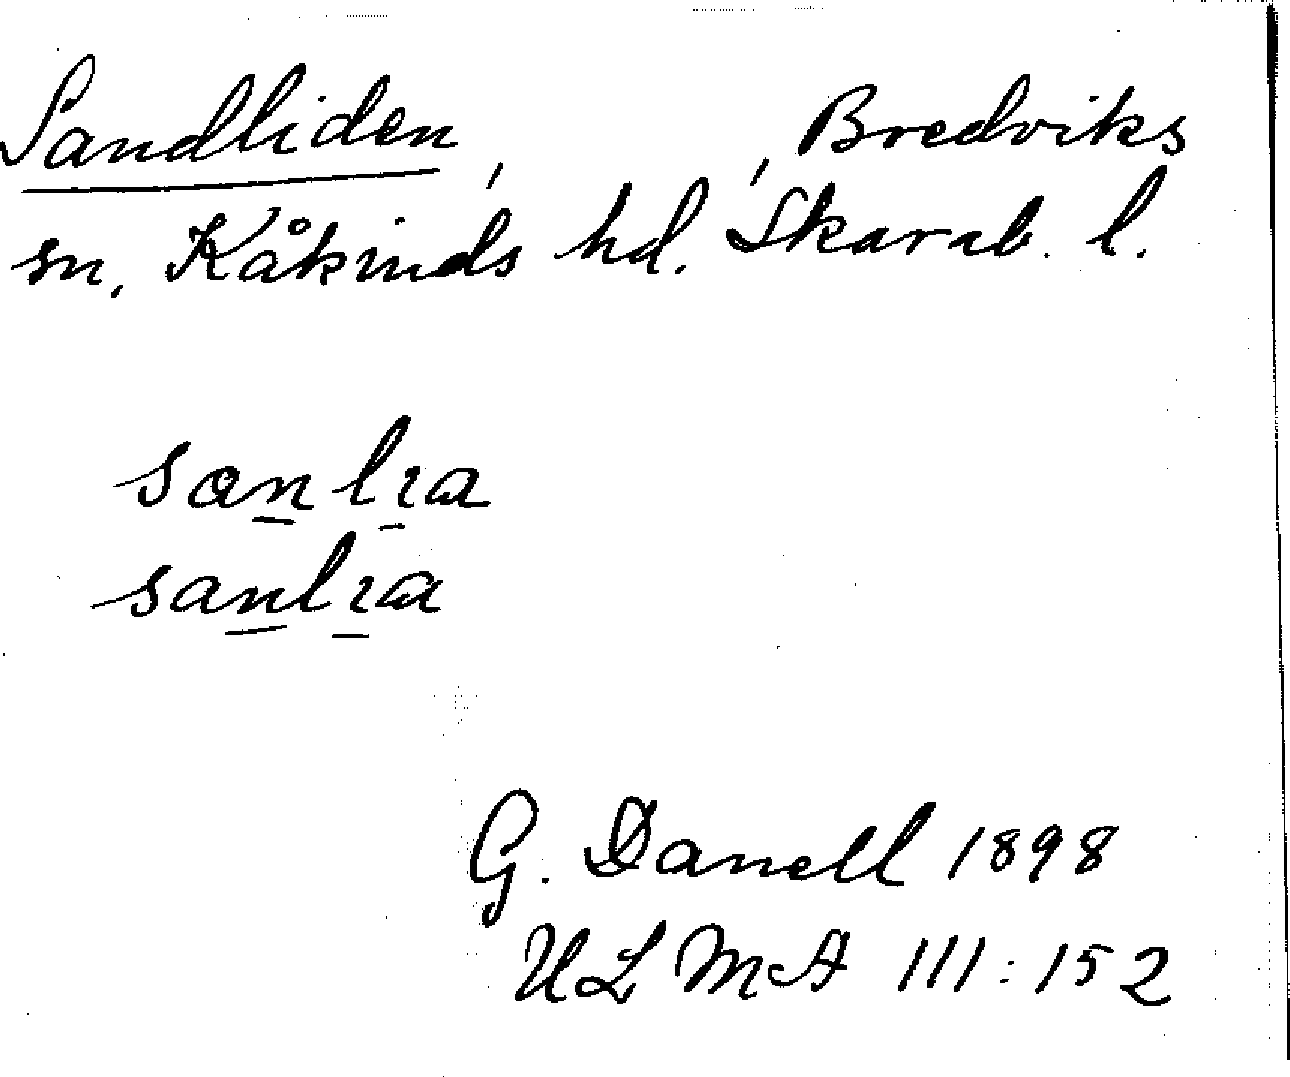 Sandliden, , Bredviks
sn, Kåkinds hd. Skarab. l.
sanlıa
sanlıa
G. Danell 1898
ULMA 111:152